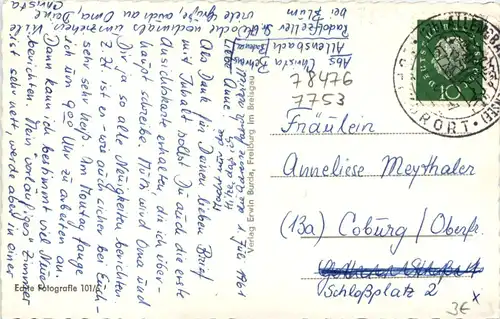 Abs. Christa
Allensbach
Radolfzeller
bei Blum
1. Juli 1961
Liebe Anne!
Als Dank für Deinen lieben Brief
mit Inhalt sollst Du auch die erste
Ansichtskarte erhalten, die ich über-
haupt schreibe. Mutti wird Oma und
Dir ja so alle Neuigkeiten berichten.
Z. Zt. ist es - wie auch sicher bei Euch -
sehr heiß. Am Montag fange
ich um 9.00 Uhr zu arbeiten an.
Dann kann ich bestimmt viel Neues
berichten. Mein "vorläufiges" Zimmer
ist sehr nett, werde aber in einer
Woche nochmals umziehen.
viele Grüße, auch an Oma, Deine
Christa
Verlag Erwin Burda, Freiburg im Breisgau
Echte Fotografie 101/6
78476
7753
DEUTSCHE BUNDESPOST
10
Fräulein
Anneliese Meythaler
(13a) Coburg / Oberfr.
Schloßplatz 2
3€ x